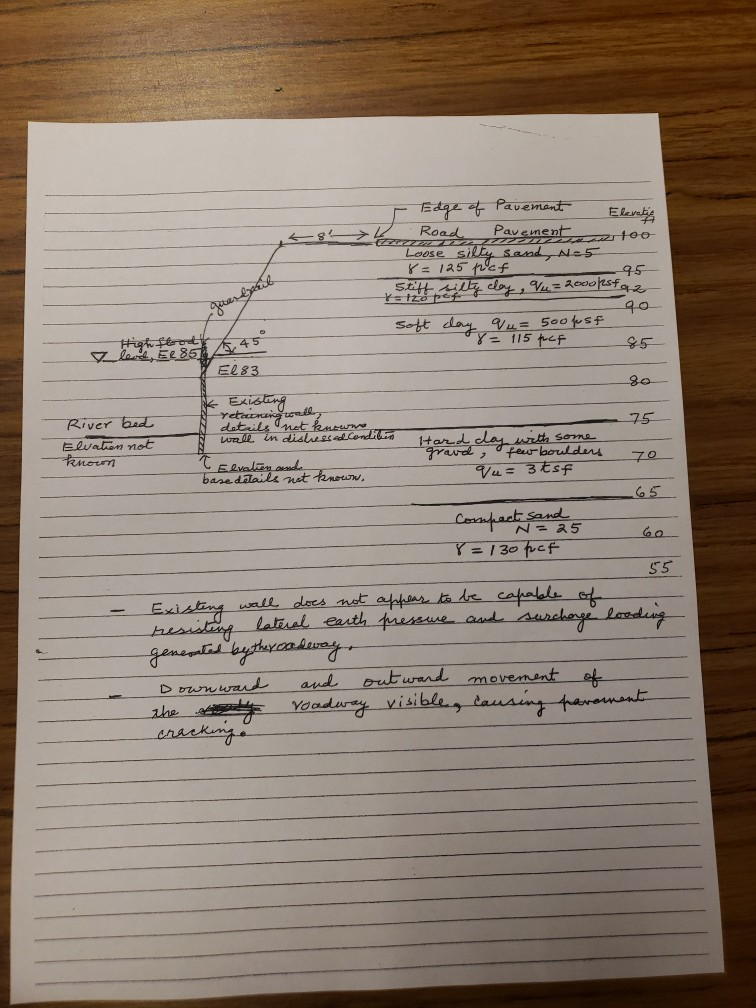 Edge of Pavement
Elevatio
ft
8'
Road Pavement
100
Loose silty sand, N=5
γ = 125 pcf
95
Stiff silty clay, qu = 2000 psf
92
γ = 120 pcf
90
guardrail
Soft clay qu = 500 psf
γ = 115 pcf
High flood
level, El 85
45°
85
El 83
80
Existing
retaining wall,
details not known
wall in distressed condition
River bed
75
Elvation not
known
Hard clay with some
gravel, few boulders
70
qu = 3 tsf
Elvation and
base details not known.
65
Compact sand
N = 25
60
γ = 130 pcf
55
– Existing wall does not appear to be capable of
resisting lateral earth pressure and surcharge loading
generated by the roadway.
– Downward and outward movement of
the roadway visible, causing pavement
cracking.